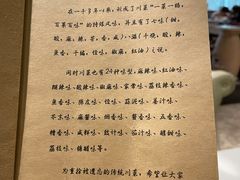 在一千多年以来，形成了川菜"一菜一格，
百菜百味"的特殊风味，并且有了七味（甜，
酸，麻，辣，苦，香，咸），八滋（干烧，酸，辣，
鱼香，干煸，怪味，椒麻，红油）之说。
同时川菜也有24种味型，麻辣味、红油味、
糊辣味、酸辣味、椒麻味、家常味、荔枝味、
鱼香味、陈皮味、怪味、蒜泥味、姜汁味、
芥末味、麻酱味、烟香味、酱香味、五香味、
糟香味、咸鲜味、豉汁味、茄汁味、醇甜味、
荔枝味、糖醋味等。
为重拾被遗忘的传统川菜，希望让大家